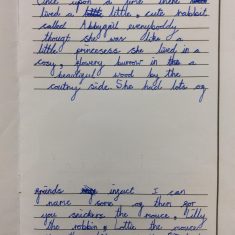 Once upon a time there
lived a little, cute rabbit
called Abbygail everybody
thougt she was like a
little princesess she lived in a
cosy, flowery burrow in the a
beautiful wood by the
coutny side. She had lots og
griends in I can
name some og then gor
you snickers the mouce, Lilly
the robbin, Lottie the mouce